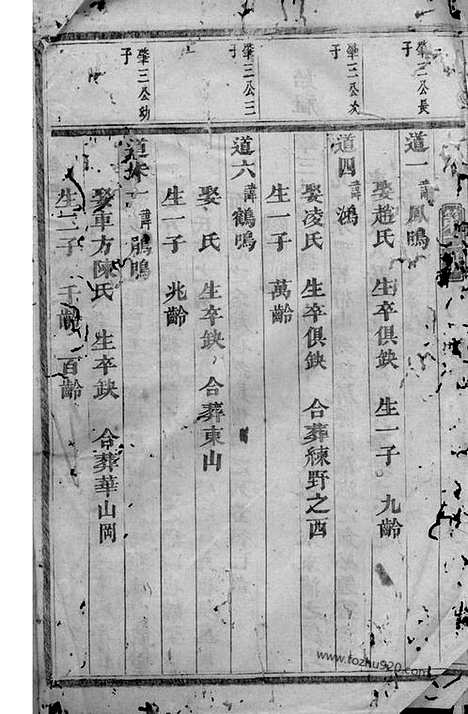 肇三公長
子
道一 諱鳳鳴
娶趙氏 生卒俱缺 生一子 九齡
肇三公次
子
道四 諱鴻
娶凌氏 生卒俱缺 合葬練野之西
生一子 萬齡
肇三公三
子
道六 諱鶴鳴
娶 氏 生卒缺 合葬東山
生一子 兆齡
肇三公幼
子
道 一 諱鵑鳴
娶車方陳氏 生卒缺 合葬華山岡
生二子 千齡 百齡
www.tozhu920.com